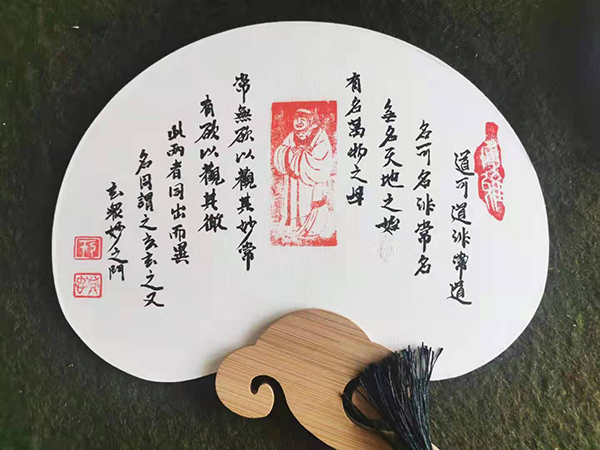 道可道非常道
名可名非常名
無名天地之始
有名萬物之母
常無欲以觀其妙常
有欲以觀其徼
此兩者同出而異
名同謂之玄玄之又
玄眾妙之門